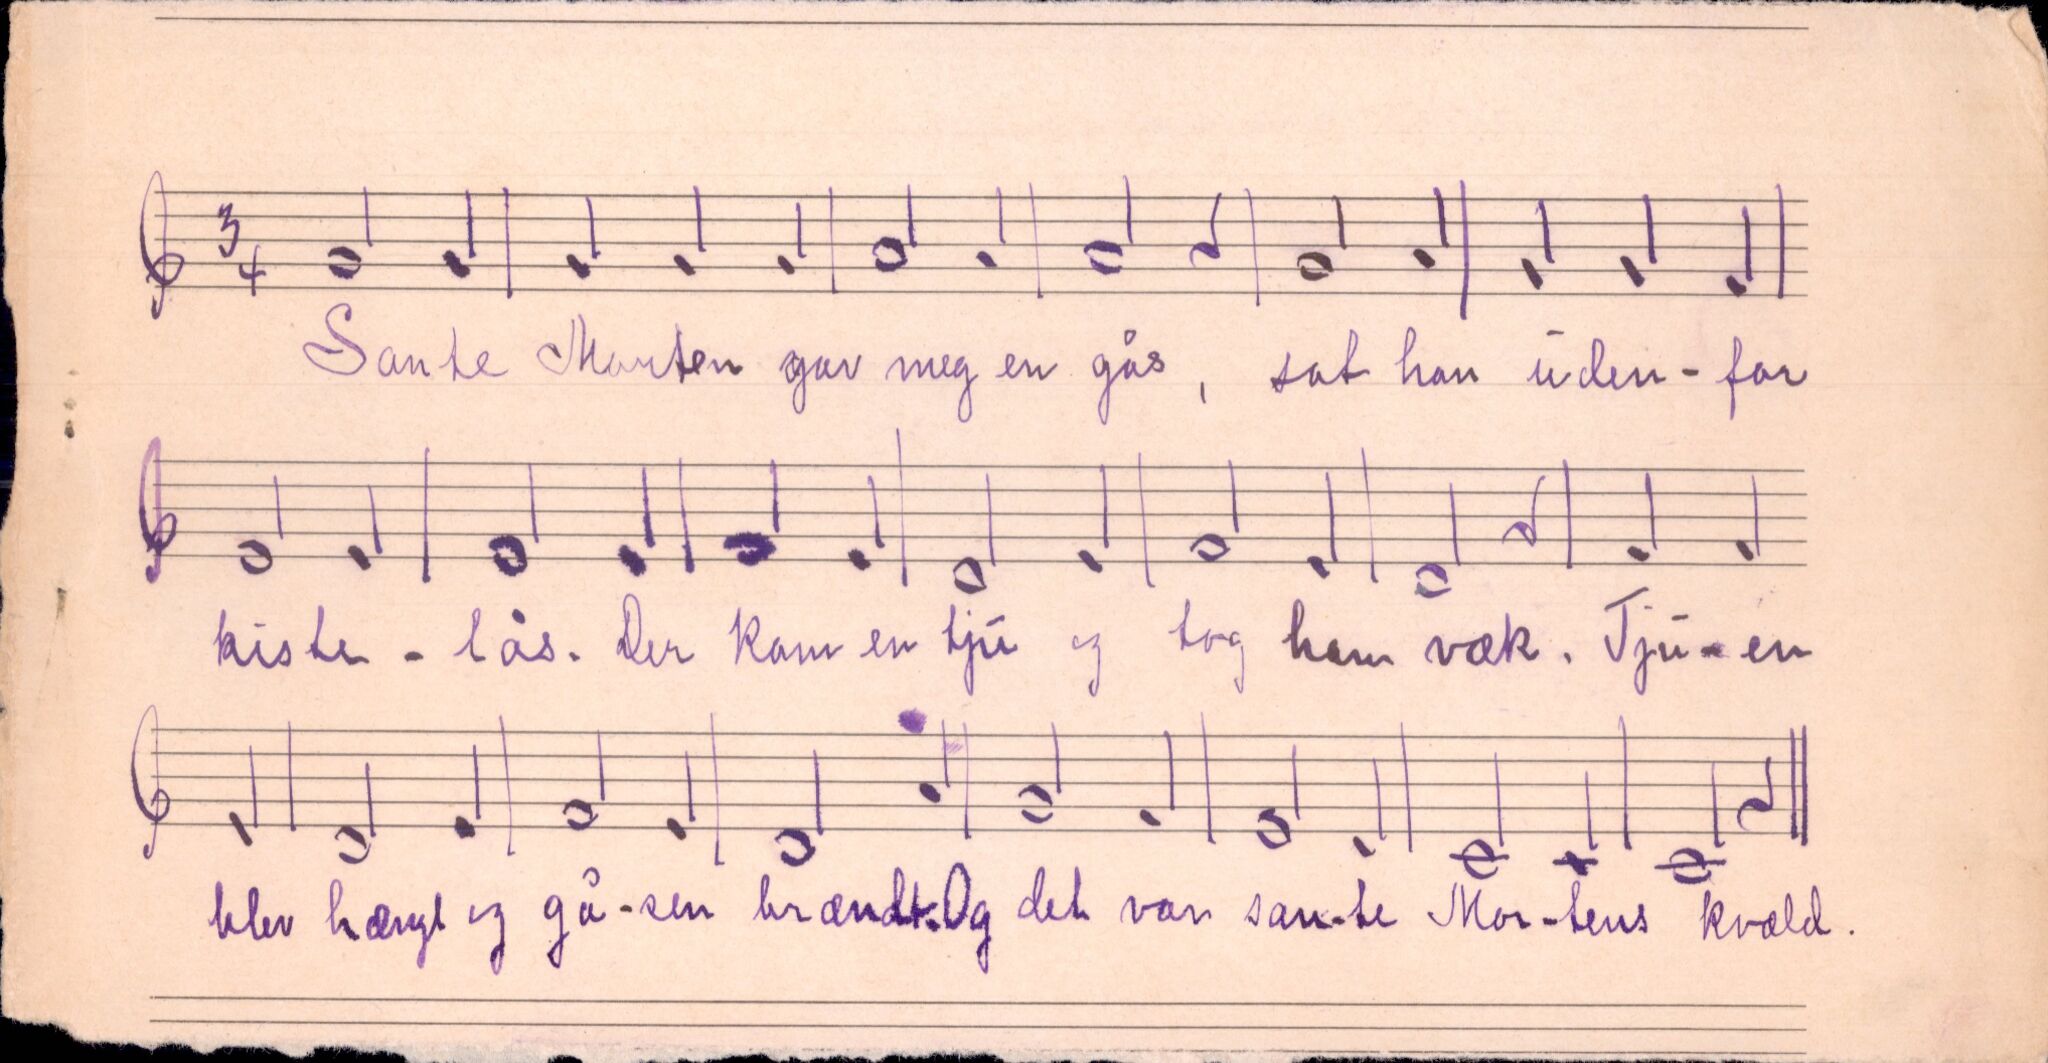 3
4
Sante Morten gav meg en gås, sat han uden-for
kiste-lås. Der kom en tjú og tog ham væk. Tjú-en
blev hængt og gå-sen brændt. Og det var san-te Mor-tens kvæld.